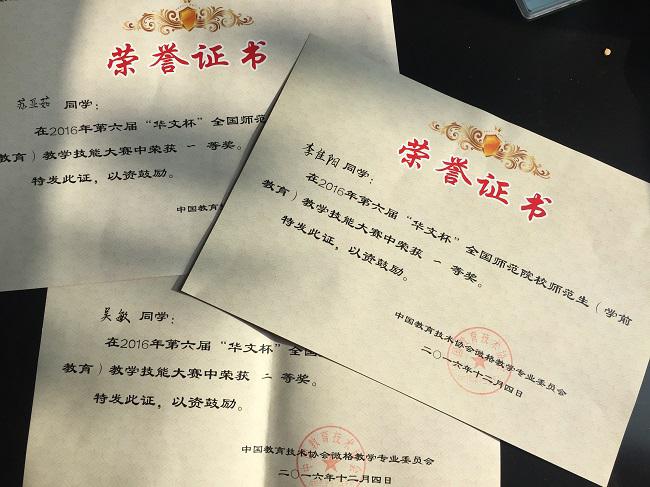 荣誉证书
苏亚茹 同学：
在2016年第六届“华文杯”全国师范
教育）教学技能大赛中荣获 一 等奖。
特发此证，以资鼓励。
中国教育技
荣誉证书
李佳阳 同学：
在2016年第六届“华文杯”全国师范院校师范生（学前
教育）教学技能大赛中荣获 一 等奖。
特发此证，以资鼓励。
中国教育技术协会微格教学专业委员会
二〇一六年十二月四日
吴敏 同学：
在2016年第六届“华文杯”全国
教育）教学技能大赛中荣获 二 等奖。
特发此证，以资鼓励。
中国教育技术协会微格教学专业委员会
二〇一六年十二月四日